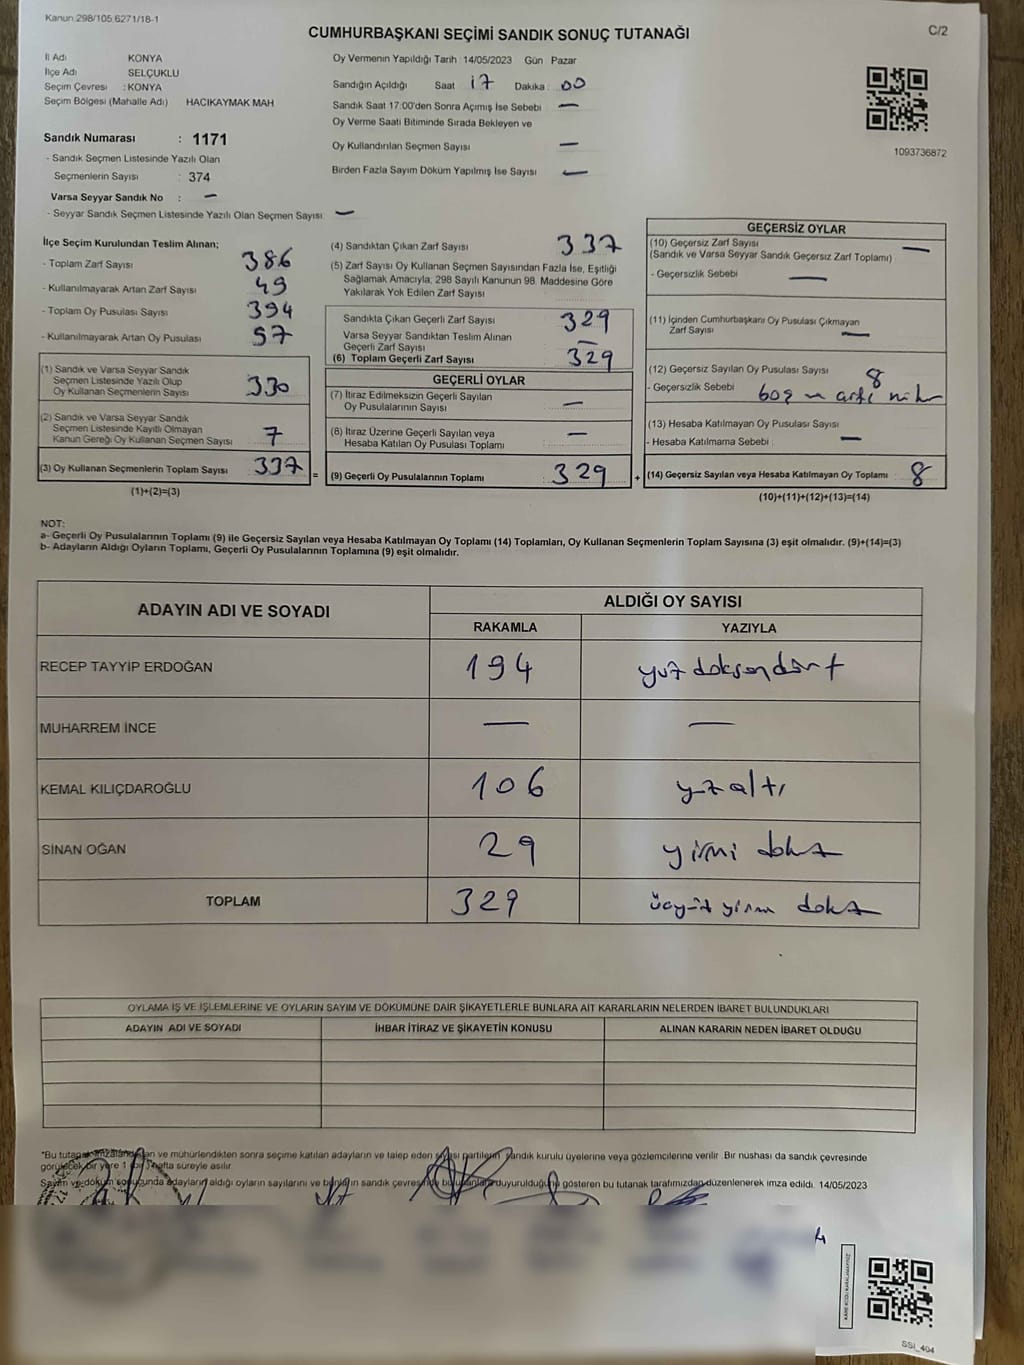 Kanun 298/105 6271/18-1
CUMHURBAŞKANI SEÇİMİ SANDIK SONUÇ TUTANAĞI
C/2
İl Adı KONYA
İlçe Adı SELÇUKLU
Seçim Çevresi : KONYA
Seçim Bölgesi (Mahalle Adı) HACIKAYMAK MAH
Sandık Numarası : 1171
- Sandık Seçmen Listesinde Yazılı Olan
Seçmenlerin Sayısı : 374
Varsa Seyyar Sandık No : —
- Seyyar Sandık Seçmen Listesinde Yazılı Olan Seçmen Sayısı: —
Oy Vermenin Yapıldığı Tarih 14/05/2023 Gün Pazar
Sandığın Açıldığı Saat 17 Dakika : 00
Sandık Saat 17:00'den Sonra Açımış İse Sebebi —
Oy Verme Saati Bitiminde Sırada Bekleyen ve
Oy Kullandırılan Seçmen Sayısı —
Birden Fazla Sayım Döküm Yapılmış İse Sayısı —
1093736872
İlçe Seçim Kurulundan Teslim Alınan;
- Toplam Zarf Sayısı 386
- Kullanılmayarak Artan Zarf Sayısı 49
- Toplam Oy Pusulası Sayısı 394
- Kullanılmayarak Artan Oy Pusulası 57
(1) Sandık ve Varsa Seyyar Sandık
Seçmen Listesinde Yazılı Olup
Oy Kullanan Seçmenlerin Sayısı 330
(2) Sandık ve Varsa Seyyar Sandık
Seçmen Listesinde Kayıtlı Olmayan
Kanun Gereği Oy Kullanan Seçmen Sayısı 7
(3) Oy Kullanan Seçmenlerin Toplam Sayısı 337 =
(1)+(2)=(3)
(4) Sandıktan Çıkan Zarf Sayısı 337
(5) Zarf Sayısı Oy Kullanan Seçmen Sayısından Fazla İse, Eşitliği
Sağlamak Amacıyla, 298 Sayılı Kanunun 98. Maddesine Göre
Yakılarak Yok Edilen Zarf Sayısı
Sandıkta Çıkan Geçerli Zarf Sayısı 329
Varsa Seyyar Sandıktan Teslim Alınan
Geçerli Zarf Sayısı —
(6) Toplam Geçerli Zarf Sayısı 329
GEÇERLİ OYLAR
(7) İtiraz Edilmeksizin Geçerli Sayılan
Oy Pusulalarının Sayısı —
(8) İtiraz Üzerine Geçerli Sayılan veya
Hesaba Katılan Oy Pusulası Toplamı —
(9) Geçerli Oy Pusulalarının Toplamı 329 +
GEÇERSİZ OYLAR
(10) Geçersiz Zarf Sayısı —
(Sandık ve Varsa Seyyar Sandık Geçersiz Zarf Toplamı)
- Geçersizlik Sebebi —
(11) İçinden Cumhurbaşkanı Oy Pusulası Çıkmayan
Zarf Sayısı —
(12) Geçersiz Sayılan Oy Pusulası Sayısı 8
- Geçersizlik Sebebi boş
(13) Hesaba Katılmayan Oy Pusulası Sayısı
- Hesaba Katılmama Sebebi : —
(14) Geçersiz Sayılan veya Hesaba Katılmayan Oy Toplamı 8
(10)+(11)+(12)+(13)=(14)
NOT:
a- Geçerli Oy Pusulalarının Toplamı (9) ile Geçersiz Sayılan veya Hesaba Katılmayan Oy Toplamı (14) Toplamları, Oy Kullanan Seçmenlerin Toplam Sayısına (3) eşit olmalıdır. (9)+(14)=(3)
b- Adayların Aldığı Oyların Toplamı, Geçerli Oy Pusulalarının Toplamına (9) eşit olmalıdır.
ADAYIN ADI VE SOYADI ALDIĞI OY SAYISI
RAKAMLA YAZIYLA
RECEP TAYYİP ERDOĞAN 194 yüz doksan dört
MUHARREM İNCE — —
KEMAL KILIÇDAROĞLU 106 yüz altı
SİNAN OĞAN 29 yirmi dokuz
TOPLAM 329 üçyüz yirmi dokuz
OYLAMA İŞ VE İŞLEMLERİNE VE OYLARIN SAYIM VE DÖKÜMÜNE DAİR ŞİKAYETLERLE BUNLARA AİT KARARLARIN NELERDEN İBARET BULUNDUKLARI
ADAYIN ADI VE SOYADI İHBAR İTİRAZ VE ŞİKAYETİN KONUSU ALINAN KARARIN NEDEN İBARET OLDUĞU
"Bu tutanak imzalandıktan ve mühürlendikten sonra seçime katılan adayların ve talep eden siyasi partilerin sandık kurulu üyelerine veya gözlemcilerine verilir. Bir nüshası da sandık çevresinde
görülecek bir yere 1 (bir) hafta süreyle asılır.
Sayım ve döküm sonucunda adayların aldığı oyların sayılarını ve bunların sandık çevresinde bulunanlara duyurulduğunu gösteren bu tutanak tarafımızdan düzenlenerek imza edildi. 14/05/2023
KARE KODU KARALAMAYINIZ
SSI_404